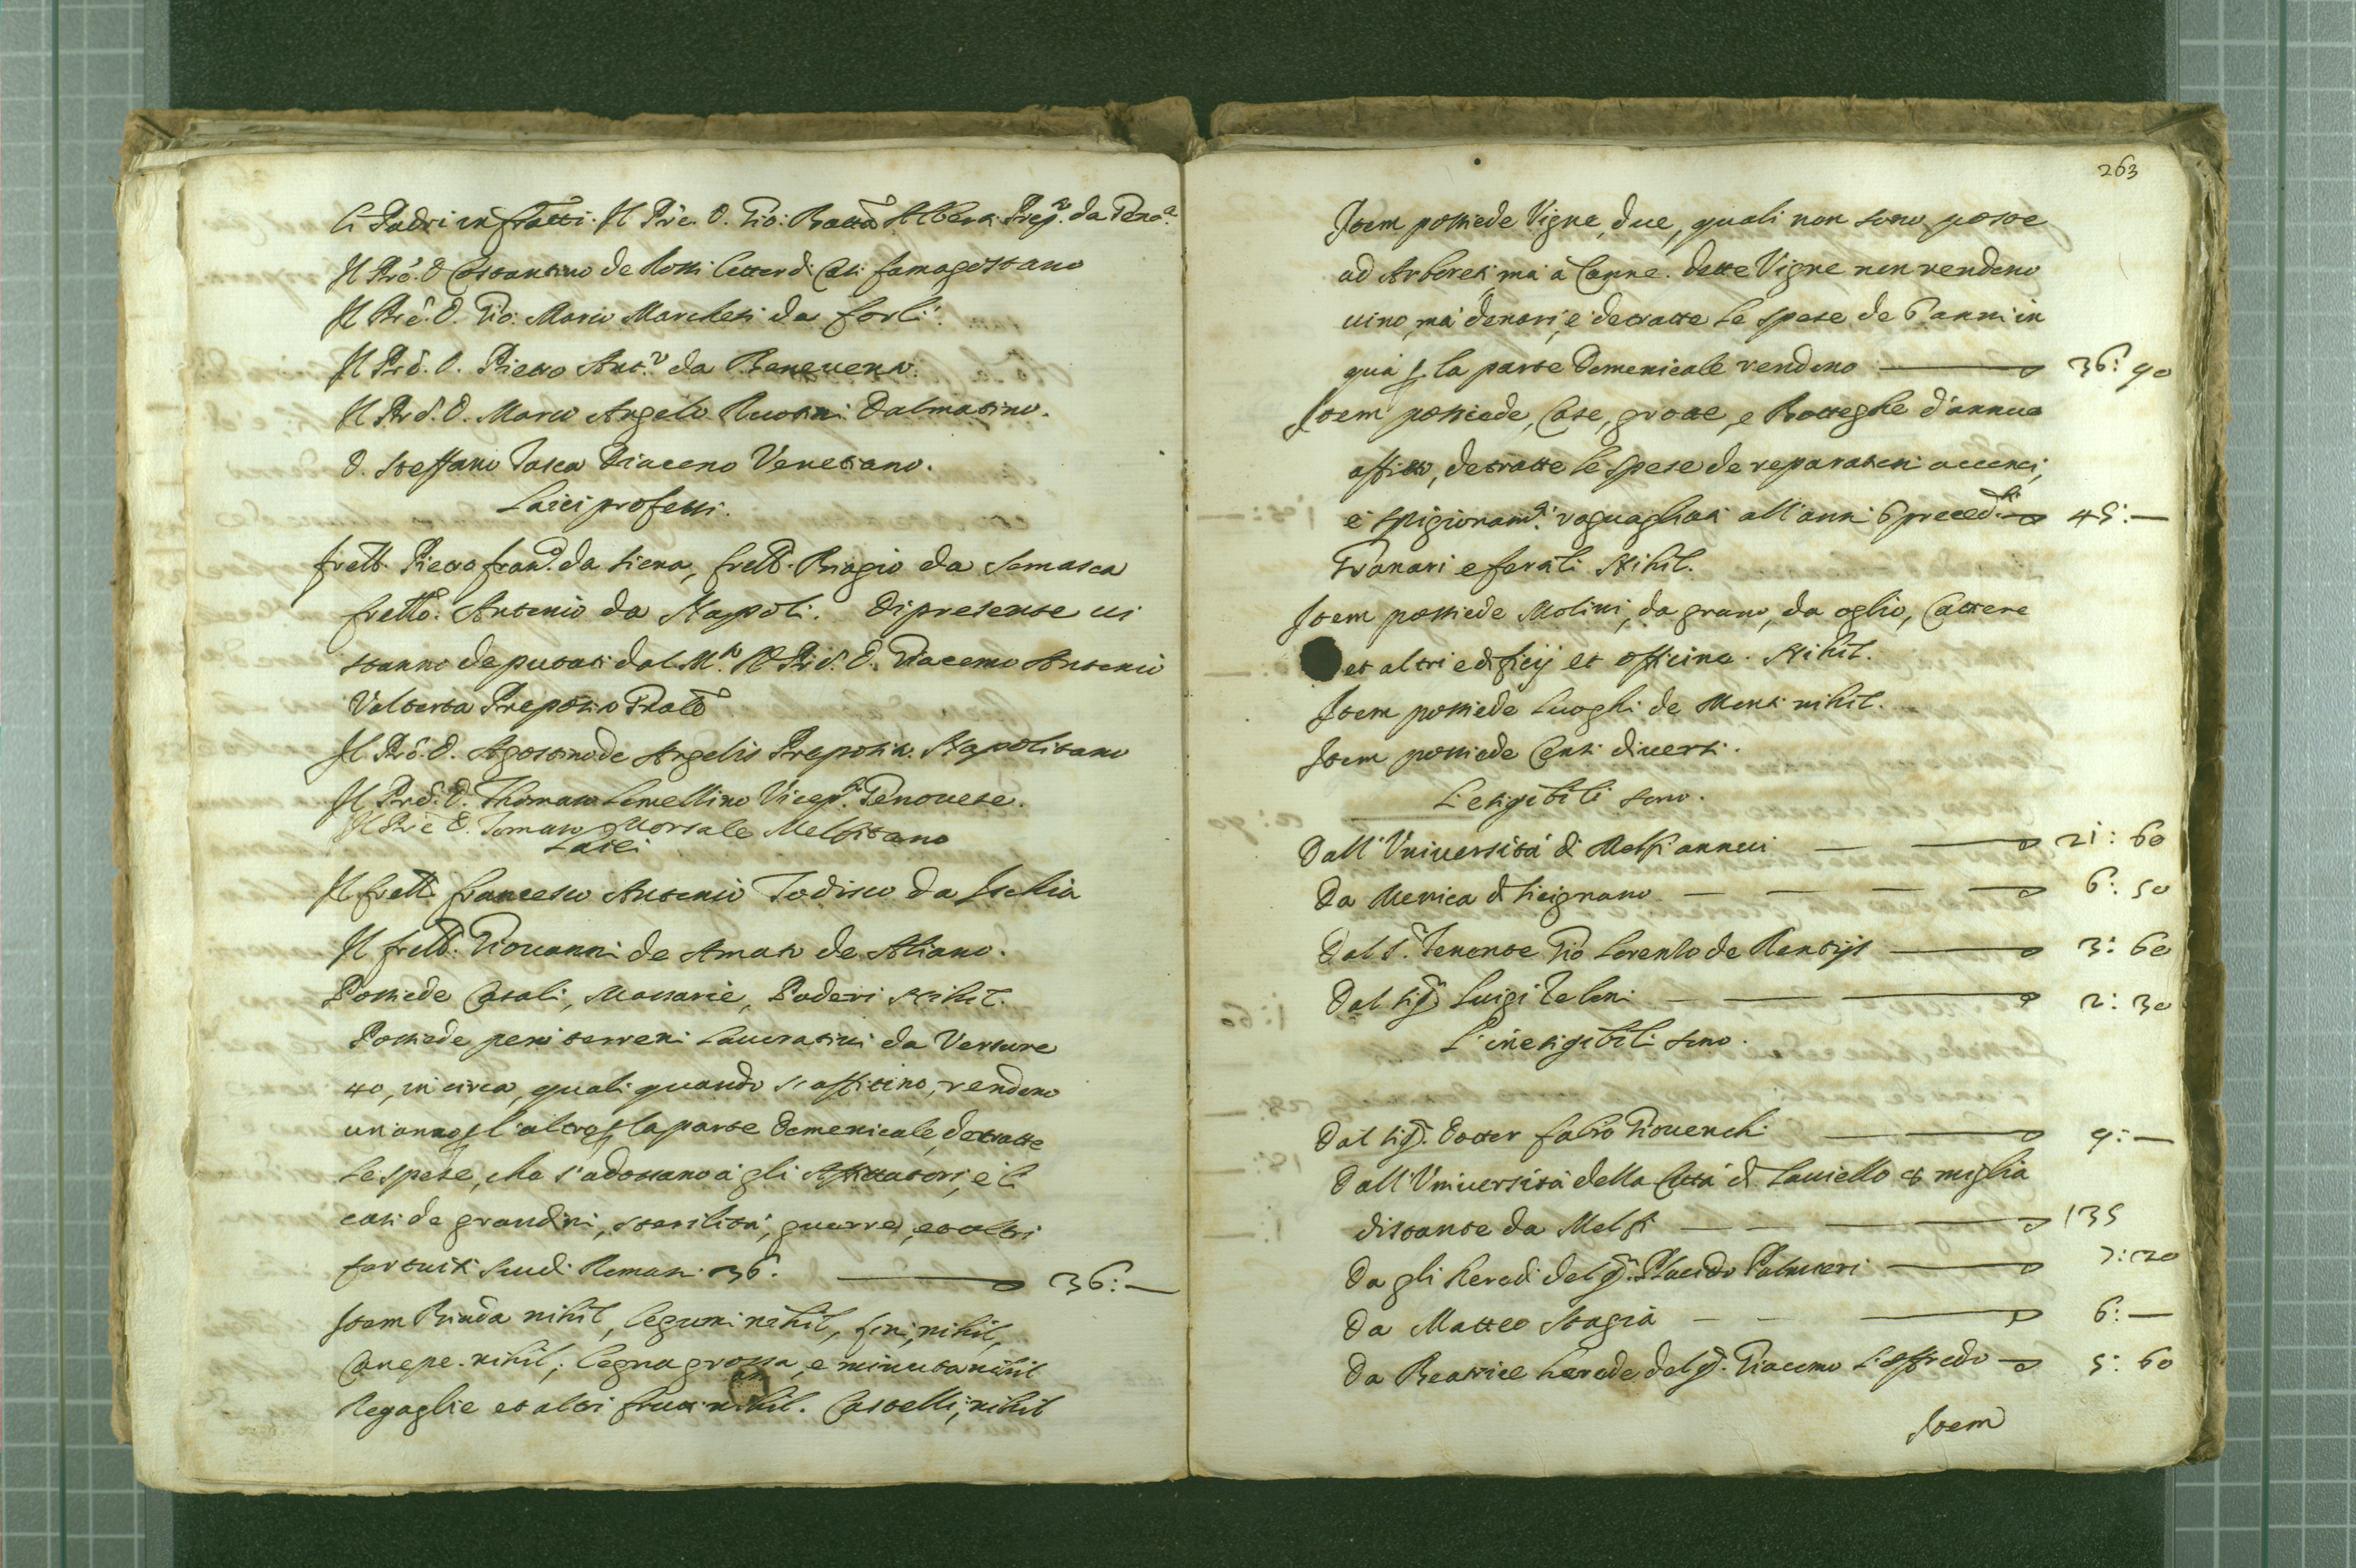 li Padri infratti. Il Pre. D. Gio: Batta Alberti Prep.to da Geno.a
Il Pre. D. Costantino de Rossi Lettor di Casi famagostano
Il Pre. D. Gio: Mario Marchesi da forlì.
Il Pre. D. Pietro Ant.o da Benevento.
Il Pre. D. Marco Angelo Dalmatino.
D. Steffano Tasca Diacono Venetiano.
Laici professi.
fratt. Pietro fran.o da Siena, fratt. Biagio da Somasca
fratto. Antonio da Napoli. Di presente vi
stanno deputati dal M.to R. Pre. D. Giacomo Antonio
Valtorta Preposito Gnale
Il Pre. D. Agostino de Angelis Preposito. Napolitano
Il Pre. D. Thomaso Lomellino Vicep.to Genovese.
Il Pre D. Tomaso Morsale Melfitano
Laici
Il fratt. francesco Antonio Todisco da Ischia
Il fratt. Giovanni de Amato de Aliano.
Possiede Casali, Massarie, Poderi Nihil.
Possiede però terreni lavorativi da Versure
40, in circa, quali quando s'affittino, rendono
un anno p l'altro p la parte Domenicale, detratte
le spese, che s'adossano à gli Affittatori, è li
casi de grandini, sterilità, guerre, et altri
fortuiti scudi Romani 36. 36: —
Item Biada nihil, legumi nihil, fieni, nihil,
Canepe. nihil; legna grossa, e minuta nihil
Regaglie et altri frutti nihil. Castelli, nihil
263
Item possiede Vigne, due, quali non sono poste
ad Arboreti, mà à Canne. dette Vigne non rendono
vino, mà denari, e detratte le spese de 6 anni in
quà p la parte Domenicale rendono — 36: 90
Item possiede, Case, grotte, e Botteghe d'annuo
affitto, detratte le spese de reparationi acconci,
e spigionam.ti raguagliati all'anni 6 preced.ti — 45: —
Granari e fenili Nihil.
Item possiede Molini, da grano, da oglio, Cartere
et altri edificij et officine. Nihil.
Item possiede luoghi de Monti nihil.
Item possiede Censi diversi.
L'esigibili sono.
Dall'Università di Melfi annui — — 21: 60
Da Menica di Sicignano — — — — 6: 50
Dal S.r Tenente Gio Lorenzo de Rentijs — 3: 60
Dal Sig.r Luigi Teloni — — — 2: 30
L'inesigibili sono.
Dal Sig.r Dotter fabio Giovenchi — — 9: —
Dall'Università della Città di Laviello 8 miglia
distante da Melfi — — — — 135
Da gli heredi del q. Placido Palmieri — 7: 20
Da Matteo Stagià — — — 6: —
Da Beatrice herede del q. Giacomo Lioffredo — 5: 60
Item